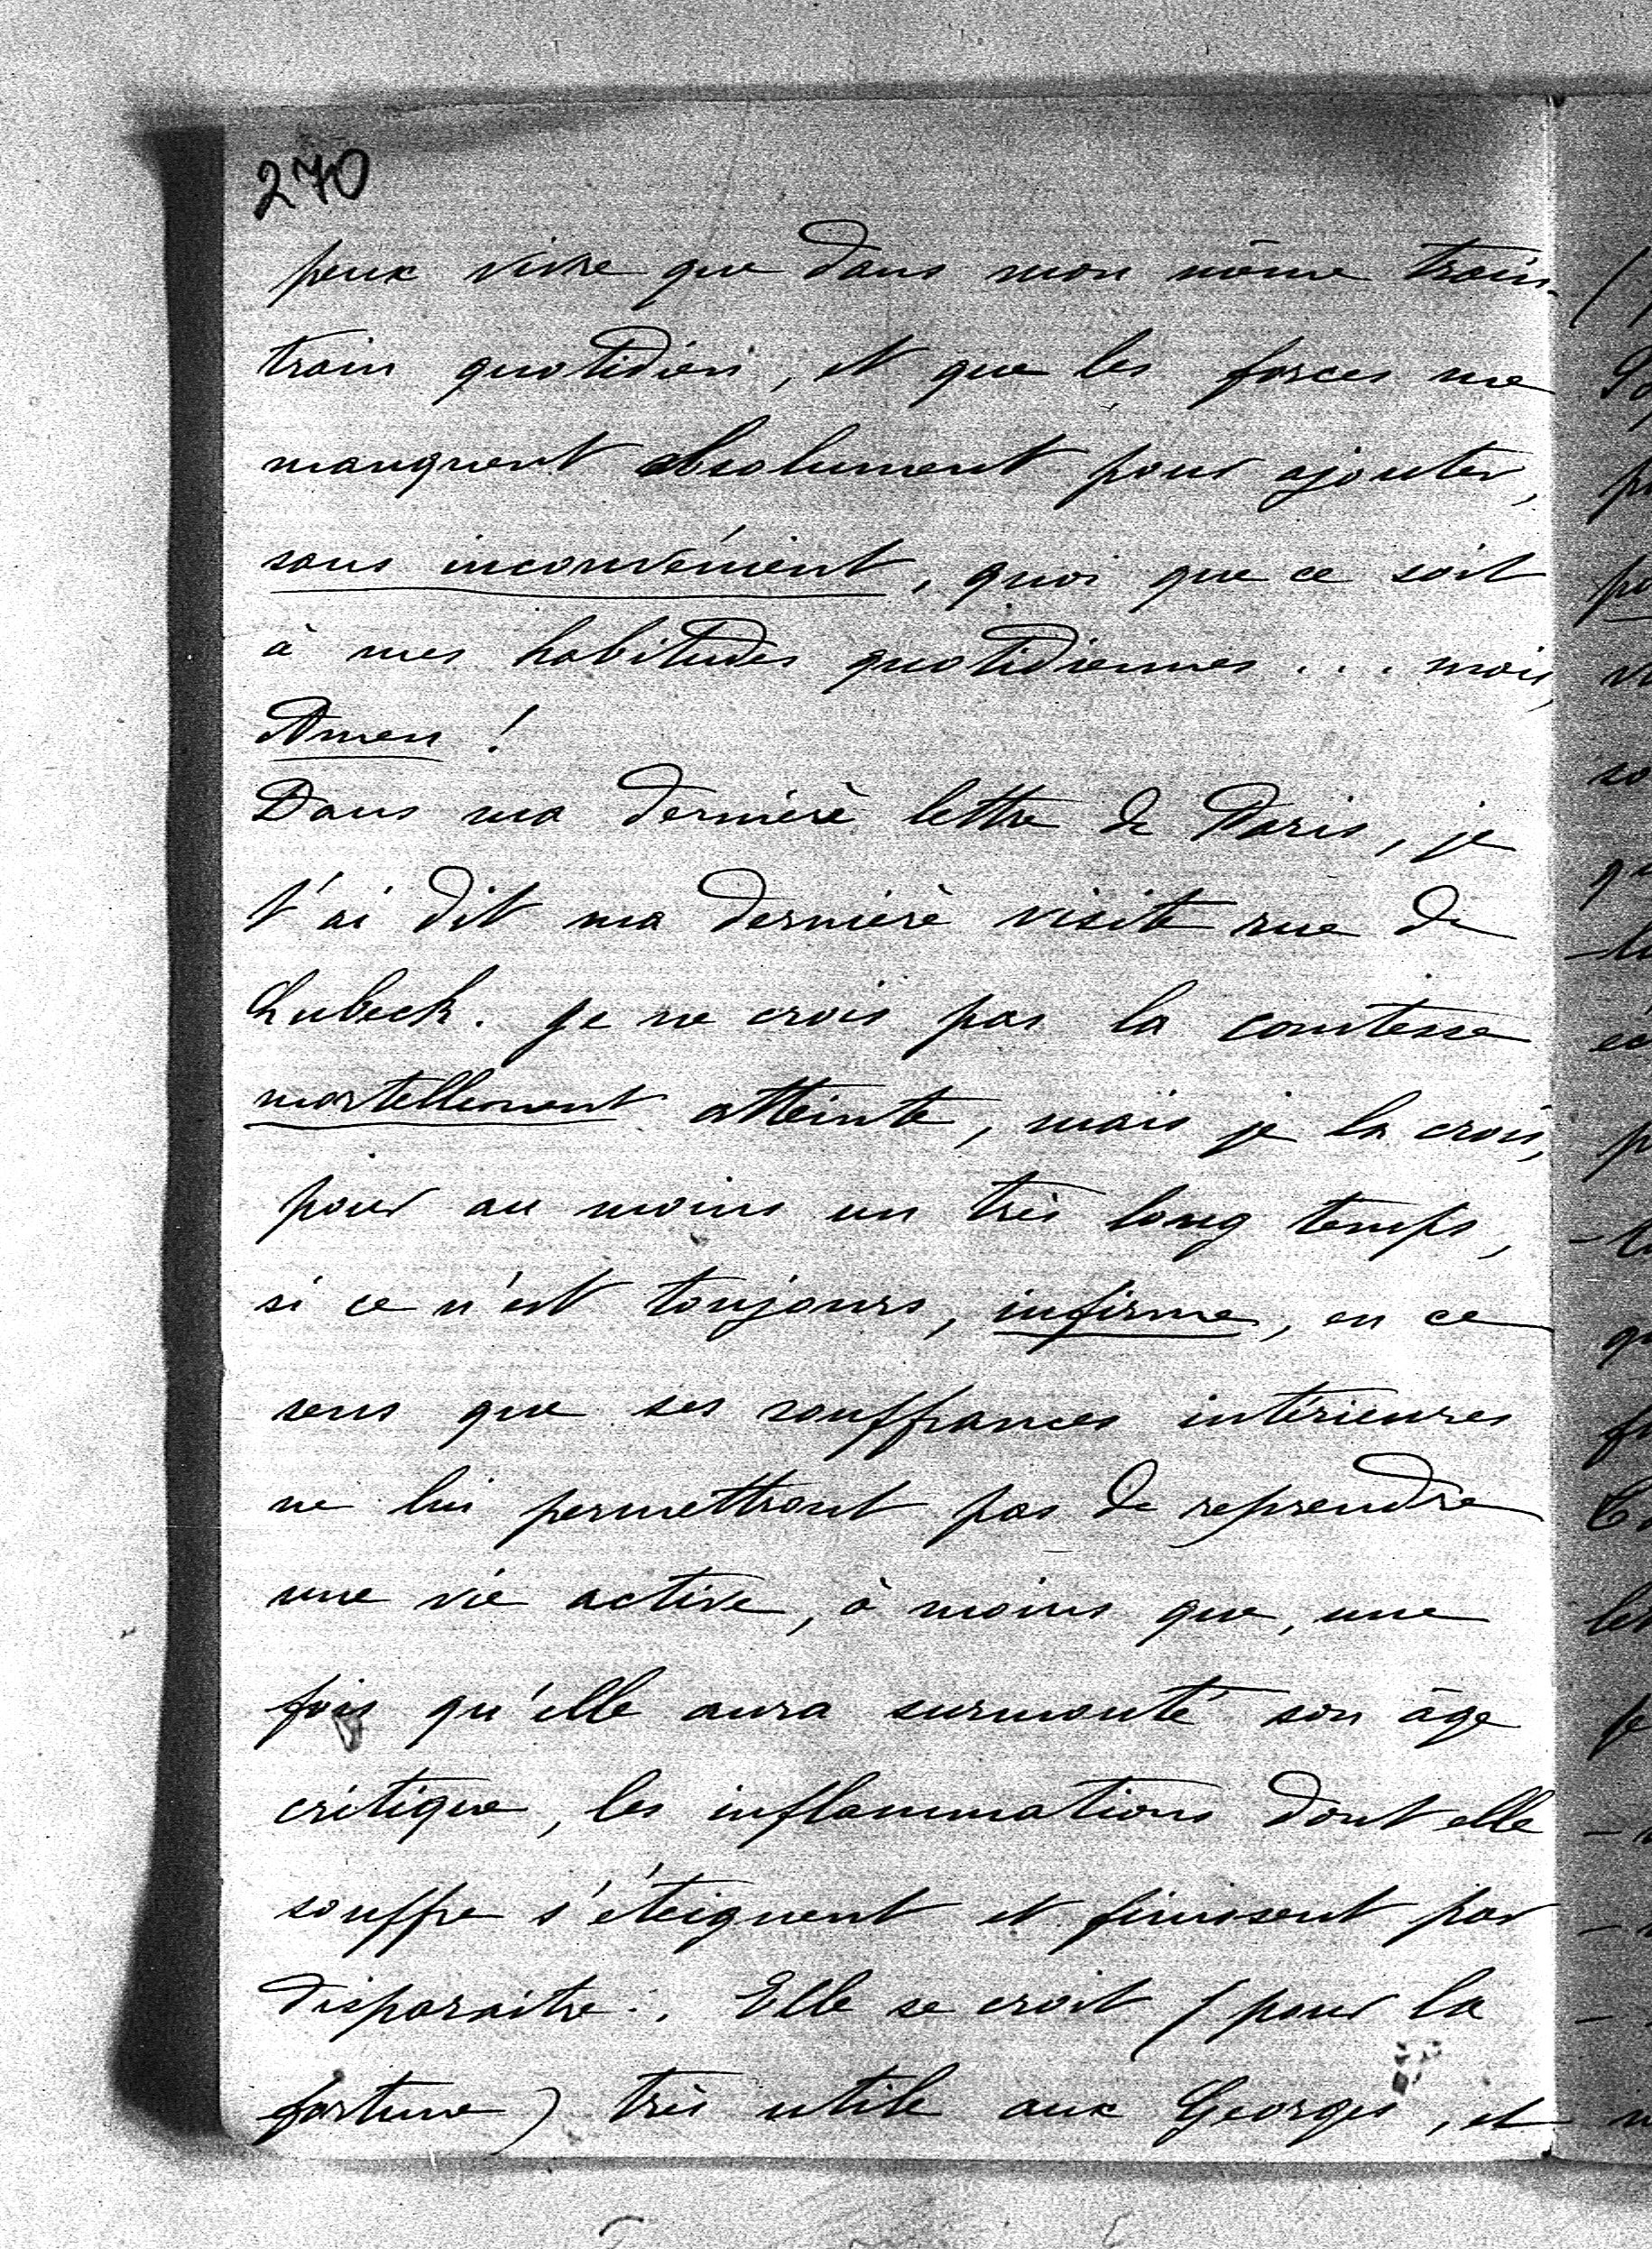 270
peux vivre que dans mon même train-
train quotidien, et que les forces me
manquent absolument pour ajouter,
sans inconvénient, quoi que ce soit
à mes habitudes quotidiennes... mais,
Amen !
Dans ma dernière lettre de Paris, je
t'ai dit ma dernière visite rue de
Lubeck. Je ne crois pas la comtesse
mortellement atteinte, mais je la crois,
pour au moins un très long temps,
si ce n'est toujours, infirme, en ce
sens que ses souffrances intérieures
ne lui permettront pas de reprendre
une vie active, à moins que, une
fois qu'elle aura surmonté son âge
critique, les inflammations dont elle
souffre s'éteignent et finissent par
disparaitre.. Elle se croit (pour la
fortune) très utile aux Georges, et